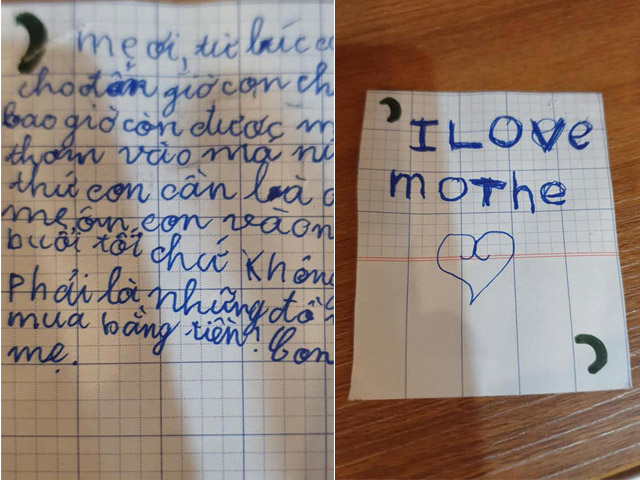 mẹ ơi, từ lúc
cho đến giờ con
bao giờ còn được
thơm vào má
thứ con cần là
mẹ, ôn con vào
buổi tối chứ không
phải là những đồ
mua bằng tiền! Con
mẹ.
I LOVe
moThe